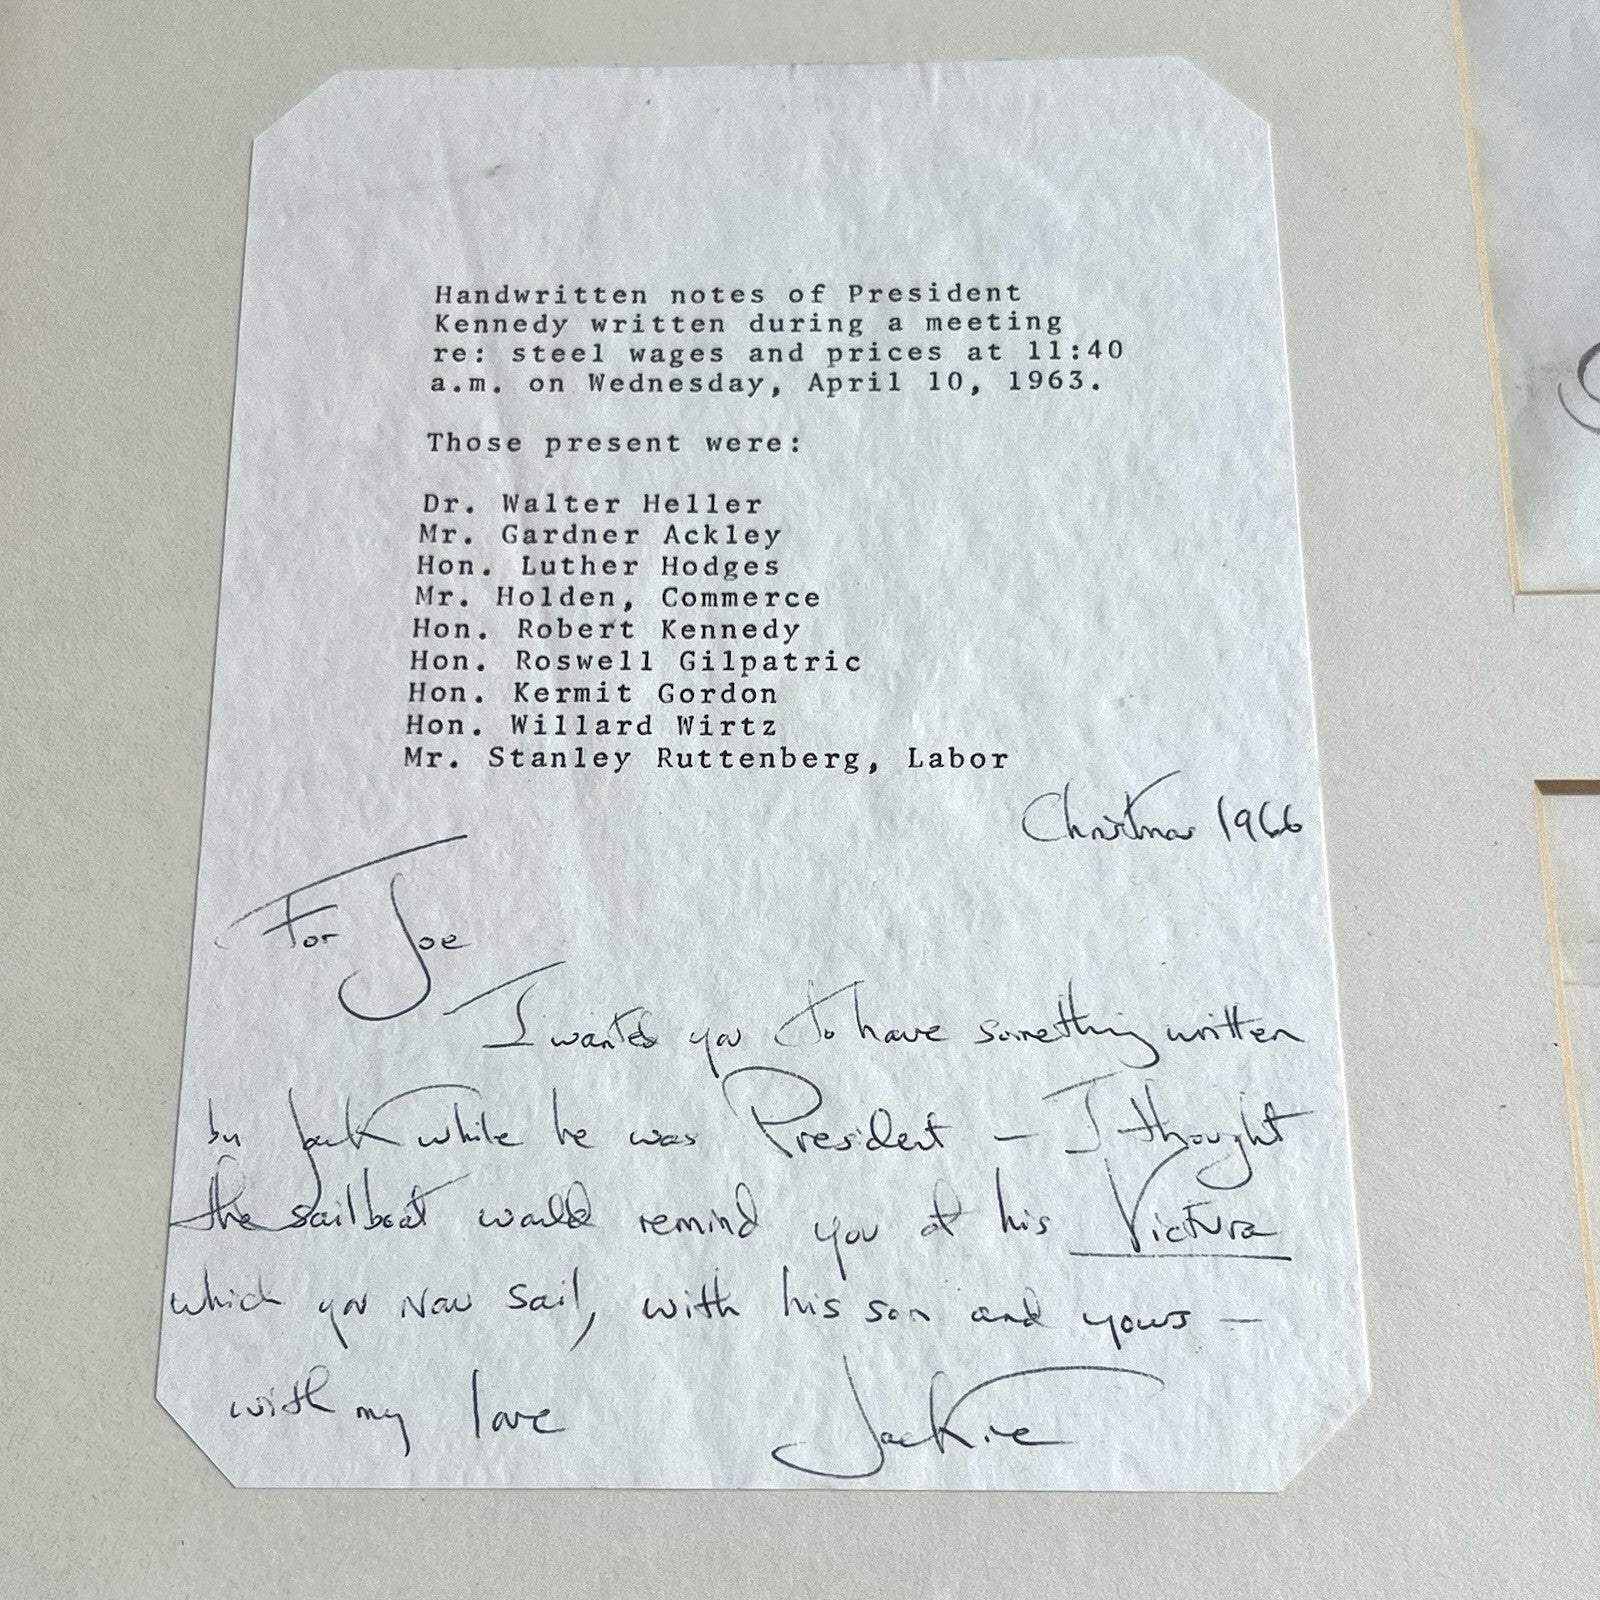 Handwritten notes of President
Kennedy written during a meeting
re: steel wages and prices at 11:40
a.m. on Wednesday, April 10, 1963.
Those present were:
Dr. Walter Heller
Mr. Gardner Ackley
Hon. Luther Hodges
Mr. Holden, Commerce
Hon. Robert Kennedy
Hon. Roswell Gilpatric
Hon. Kermit Gordon
Hon. Willard Wirtz
Mr. Stanley Ruttenberg, Labor
Christmas 1966
For Joe
I wanted you to have something written
by Jack while he was President — I thought
the sailboat would remind you of his Victura
which you now sail, with his son and yours —
with my love Jackie